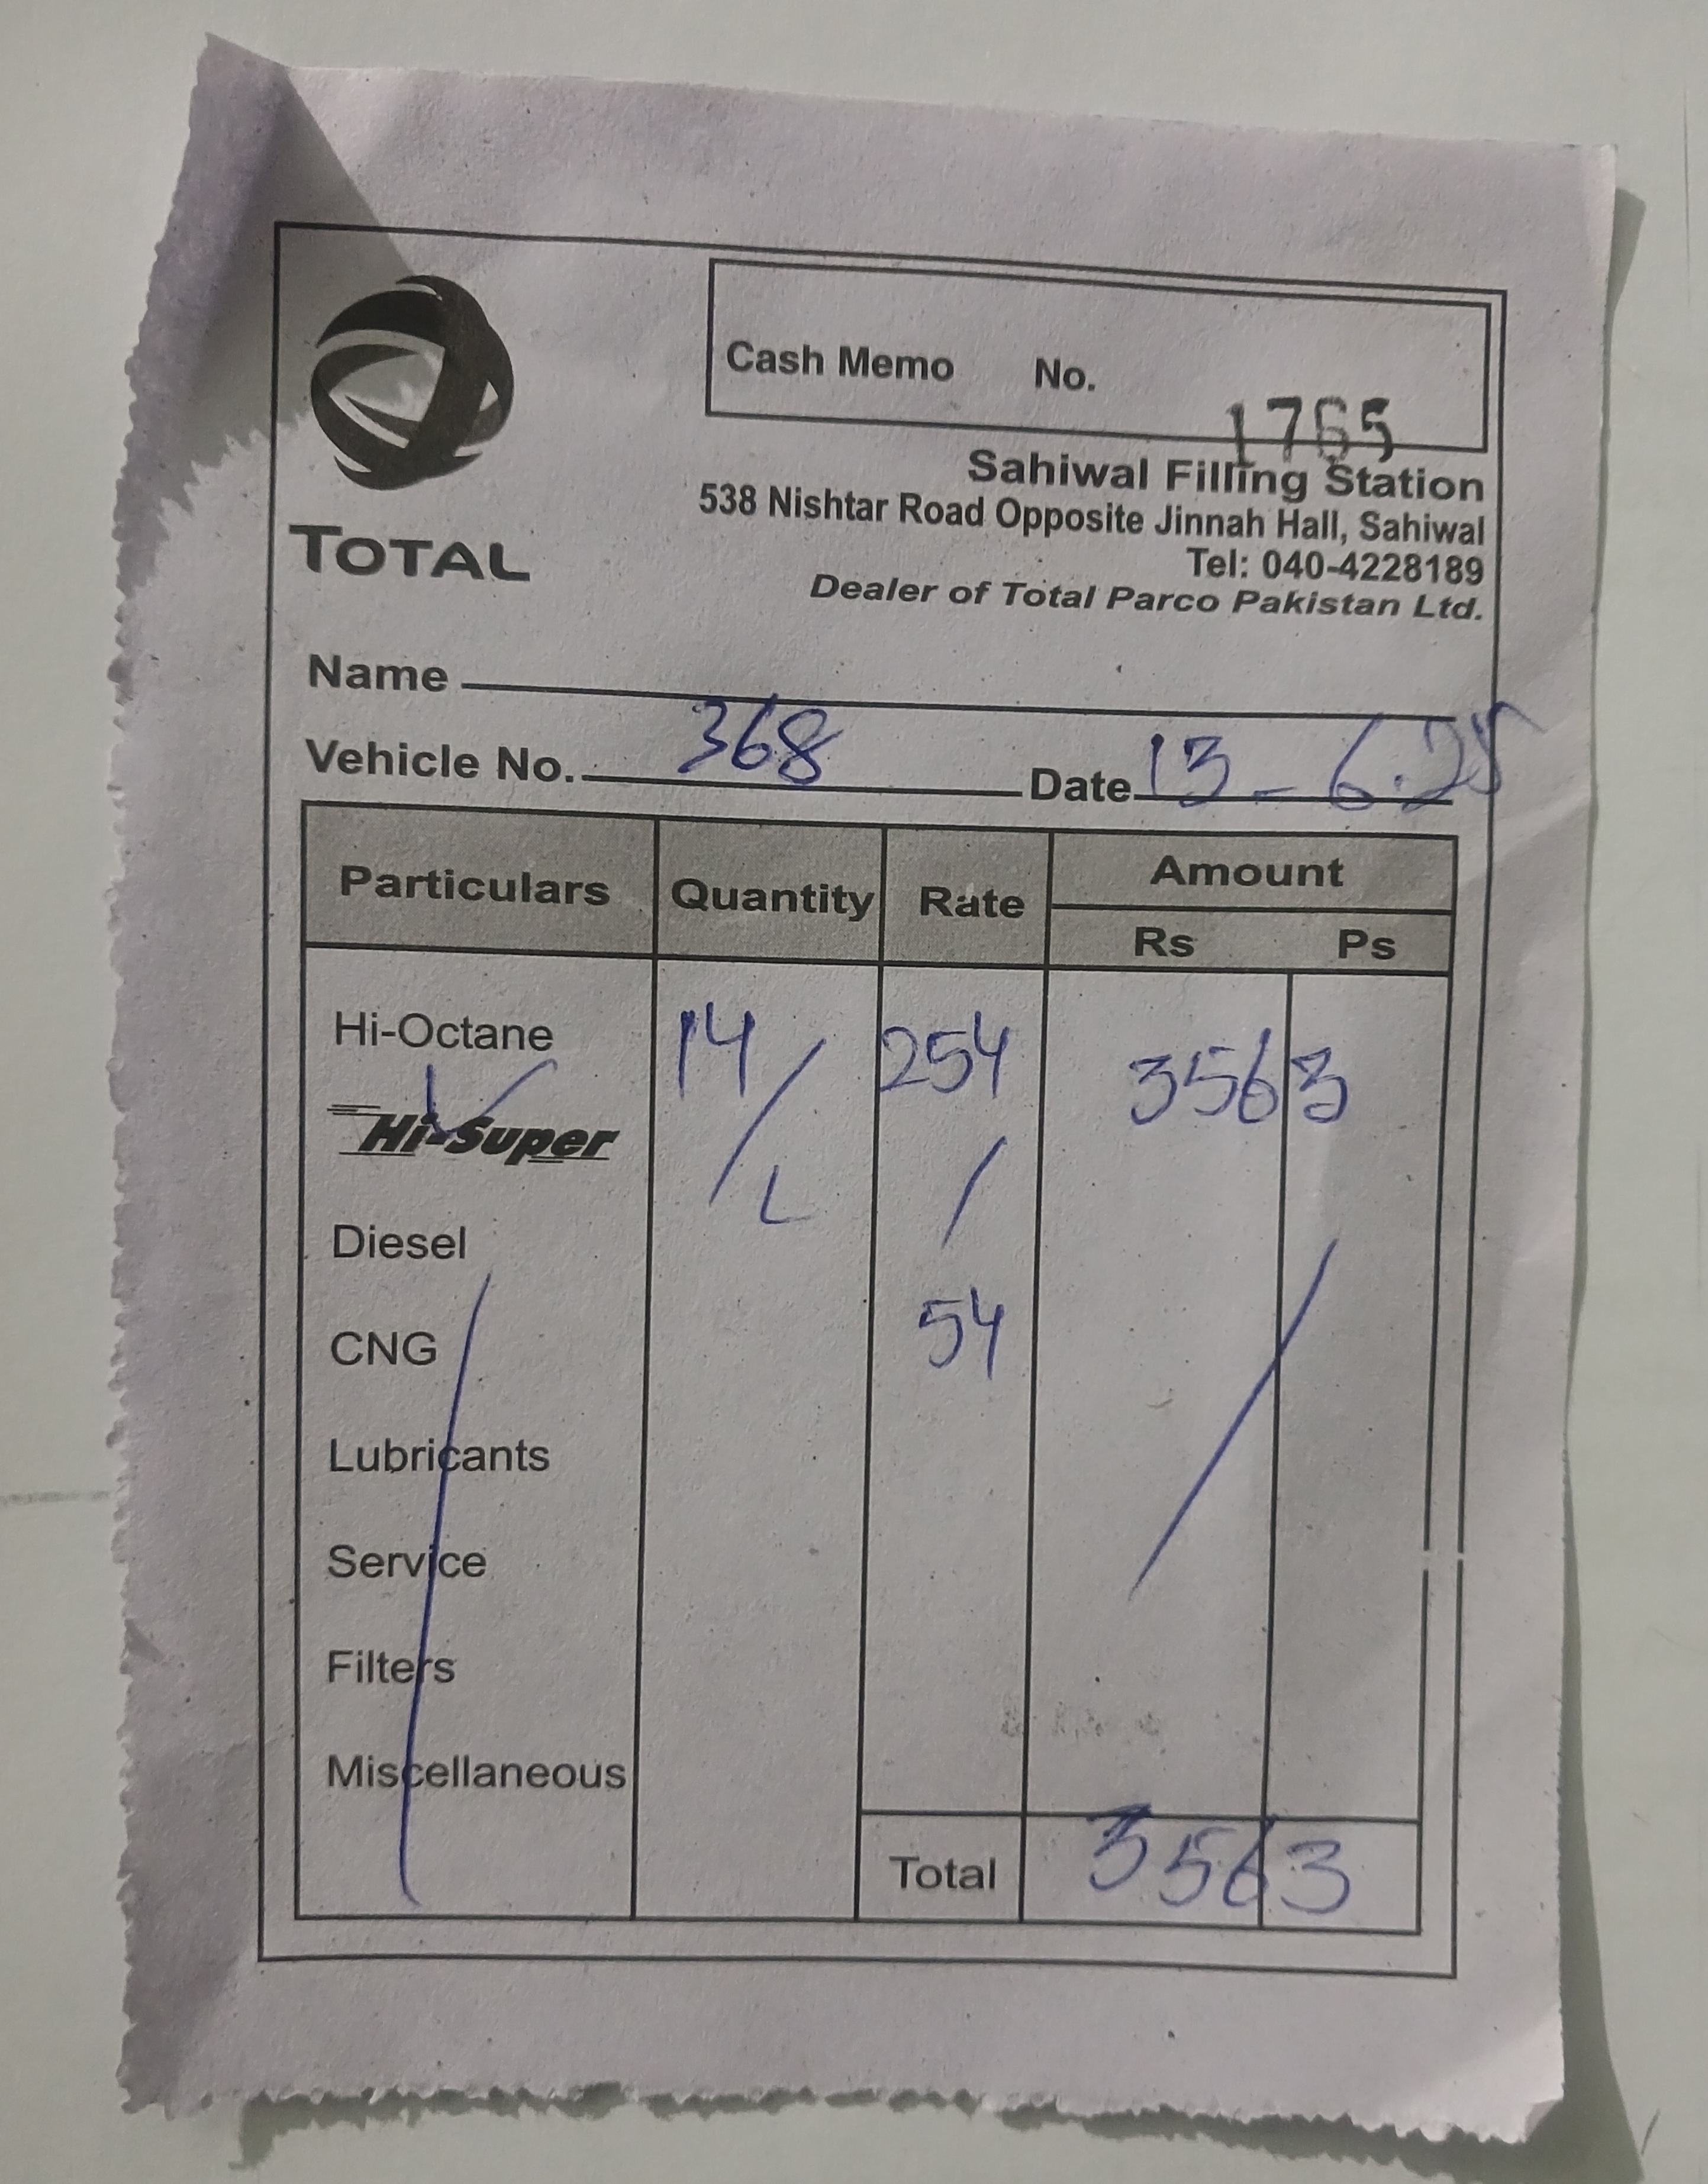 Cash Memo No. 1765
TOTAL
Sahiwal Filling Station
538 Nishtar Road Opposite Jinnah Hall, Sahiwal
Tel: 040-4228189
Dealer of Total Parco Pakistan Ltd.
Name
Vehicle No. 368 Date 13-6.25
Particulars Quantity Rate Amount
Rs Ps
Hi-Octane 14/L 254/54 3563
Hi-Super
Diesel
CNG
Lubricants
Service
Filters
Miscellaneous
Total 3563